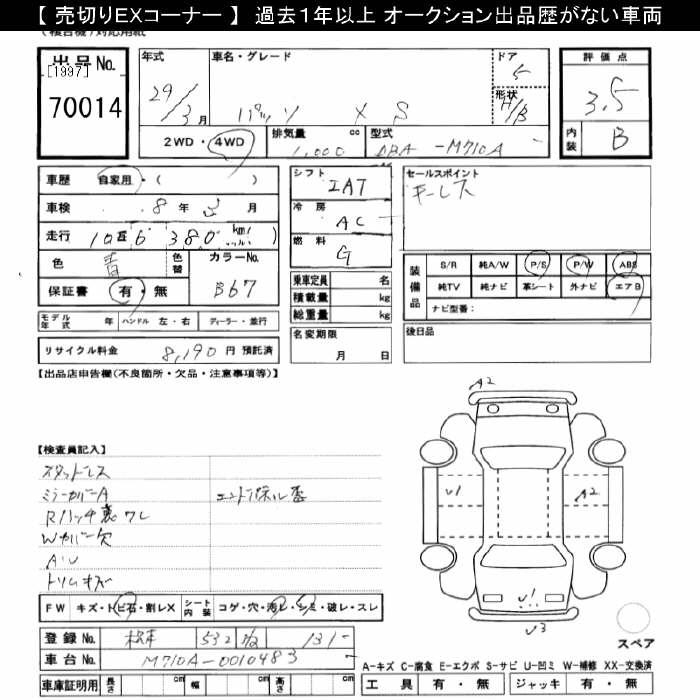 【 売切りEXコーナー 】 過去1年以上 オークション出品歴がない車両
出品No.
[1997]
70014
年式
29/3月
車名・グレード
パッソ X S
ドア
5
形状
H/B
2WD・4WD
排気量 cc
1,000
型式
DBA-M710A
評価点
3.5
内装
B
車歴 自家用・( )
車検 8年3月
走行 10万6380km
色 青
色替
カラーNo.
B67
保証書 有・無
シフト
IAT
冷房
AC
燃料
G
セールスポイント
キーレス
乗車定員 名
積載量 kg
総重量 kg
名変期限
月 日
装備品
S/R 純A/W P/S P/W ABS
純TV 純ナビ 革シート 外ナビ エアB
ナビ型番:
後日品
モデル年式 年 ハンドル 左・右 ディーラー・並行
リサイクル料金 8,190円 預託済
【出品店申告欄(不良箇所・欠品・注意事項等)】
【検査員記入】
スタットレス
ミラーカバーA
エンドパネル歪
Rハッチ裏ワレ
Wカバー欠
A・U
トリムキズ
FW キズ・トビ石・割レX シート内装 コゲ・穴・汚レ・シミ・破レ・スレ
登録No. 松本 532 131-
車台No. M710A-0010483
車庫証明用 長さ cm 幅 cm 高さ cm
A2
U1
A2
U1
U3
スペア
A-キズ C-腐食 E-エクボ S-サビ U-凹ミ W-補修 XX-交換済
工具 有・無 ジャッキ 有・無